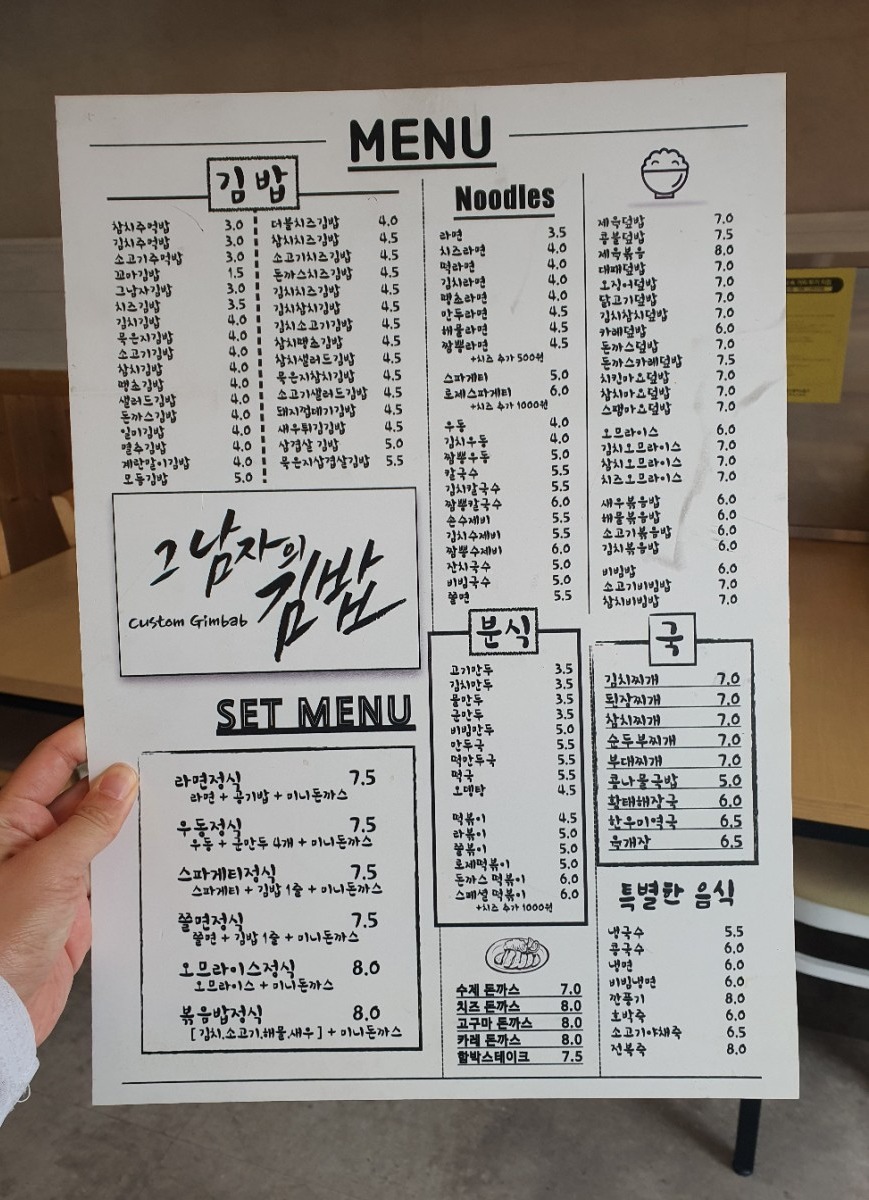 MENU
김밥
참치주먹밥 3.0
김치주먹밥 3.0
소고기주먹밥 3.0
꼬마김밥 1.5
그남자김밥 3.0
치즈김밥 3.5
김치김밥 4.0
묵은지김밥 4.0
소고기김밥 4.0
참치김밥 4.0
땡초김밥 4.0
샐러드김밥 4.0
돈까스김밥 4.0
일미김밥 4.0
멸추김밥 4.0
계란말이김밥 4.0
모듬김밥 5.0
더블치즈김밥 4.0
참치치즈김밥 4.5
소고기치즈김밥 4.5
돈까스치즈김밥 4.5
김치치즈김밥 4.5
김치참치김밥 4.5
김치소고기김밥 4.5
참치땡초김밥 4.5
참치샐러드김밥 4.5
묵은지참치김밥 4.5
소고기샐러드김밥 4.5
돼지껍데기김밥 4.5
새우튀김김밥 4.5
삼겹살 김밥 5.0
묵은지삼겹살김밥 5.5
그남자의
김밥
Custom Gimbab
SET MENU
라면정식 7.5
라면 + 공기밥 + 미니돈까스
우동정식 7.5
우동 + 군만두 4개 + 미니돈까스
스파게티정식 7.5
스파게티 + 김밥 1줄 + 미니돈까스
쫄면정식 7.5
쫄면 + 김밥 1줄 + 미니돈까스
오므라이스정식 8.0
오므라이스 + 미니돈까스
볶음밥정식 8.0
[ 김치,소고기,해물,새우 ] + 미니돈까스
Noodles
라면 3.5
치즈라면 4.0
떡라면 4.0
김치라면 4.0
땡초라면 4.0
만두라면 4.5
해물라면 4.5
짬뽕라면 4.5
+치즈 추가 500원
스파게티 5.0
로제스파게티 6.0
+치즈 추가 1000원
우동 4.0
김치우동 4.0
짬뽕우동 5.0
칼국수 5.5
김치칼국수 5.5
짬뽕칼국수 6.0
손수제비 5.5
김치수제비 5.5
짬뽕수제비 6.0
잔치국수 5.0
비빔국수 5.0
쫄면 5.5
분식
고기만두 3.5
김치만두 3.5
물만두 3.5
군만두 3.5
비빔만두 5.0
만두국 5.5
떡만두국 5.5
떡국 5.5
오뎅탕 4.5
떡볶이 4.5
라볶이 5.0
쫄볶이 5.0
로제떡볶이 5.0
돈까스 떡볶이 6.0
스페셜 떡볶이 6.0
+치즈 추가 1000원
수제 돈까스 7.0
치즈 돈까스 8.0
고구마 돈까스 8.0
카레 돈까스 8.0
함박스테이크 7.5
제육덮밥 7.0
콩불덮밥 7.5
제육볶음 8.0
대패덮밥 7.0
오징어덮밥 7.0
닭고기덮밥 7.0
김치참치덮밥 7.0
카레덮밥 6.0
돈까스덮밥 7.0
돈까스카레덮밥 7.5
치킨마요덮밥 7.0
참치마요덮밥 7.0
스팸마요덮밥 7.0
오므라이스 6.0
김치오므라이스 7.0
참치오므라이스 7.0
치즈오므라이스 7.0
새우볶음밥 6.0
해물볶음밥 6.0
소고기볶음밥 6.0
김치볶음밥 6.0
비빔밥 6.0
소고기비빔밥 7.0
참치비빔밥 7.0
국
김치찌개 7.0
된장찌개 7.0
참치찌개 7.0
순두부찌개 7.0
부대찌개 7.0
콩나물국밥 5.0
황태해장국 6.0
한우미역국 6.5
육개장 6.5
특별한 음식
냉국수 5.5
콩국수 6.0
냉면 6.0
비빔냉면 6.0
깐풍기 8.0
호박죽 6.0
소고기야채죽 6.5
전복죽 8.0